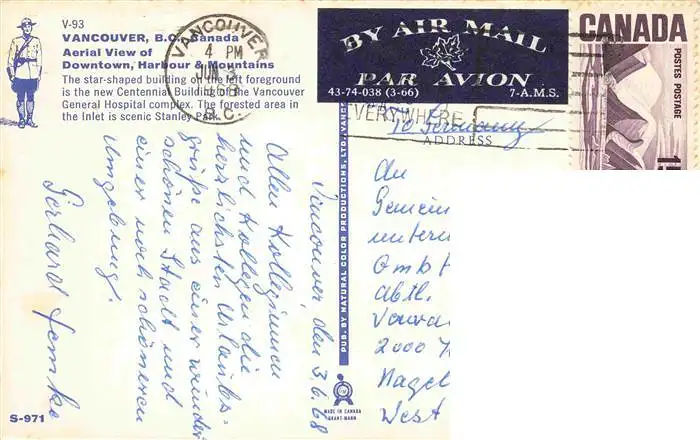 V-93
VANCOUVER, B.C., Canada
Aerial View of
Downtown, Harbour & Mountains
The star-shaped building on the left foreground
is the new Centennial Building of the Vancouver
General Hospital complex. The forested area in
the Inlet is scenic Stanley Park.
VANCOUVER
4 PM
JUN 3
B.C.
BY AIR MAIL
PAR AVION
43-74-038 (3-66) 7-A.M.S.
CANADA
POSTES POSTAGE
EVERYWHERE
To Germany
ADDRESS
Vancouver, den 3.6.68
Allen Kolleginnen
und Kollegen die
herzlichsten Urlaubs-
grüße aus einer wunder
schönen Stadt und
einer noch schöneren
Umgebung.
Gerhard
An
Gemein
untern
GmbH
Abtl.
2000
Nagel
West
PUB. BY NATURAL COLOR PRODUCTIONS, LTD., VANC
MADE IN CANADA
GRANT-MANN
S-971